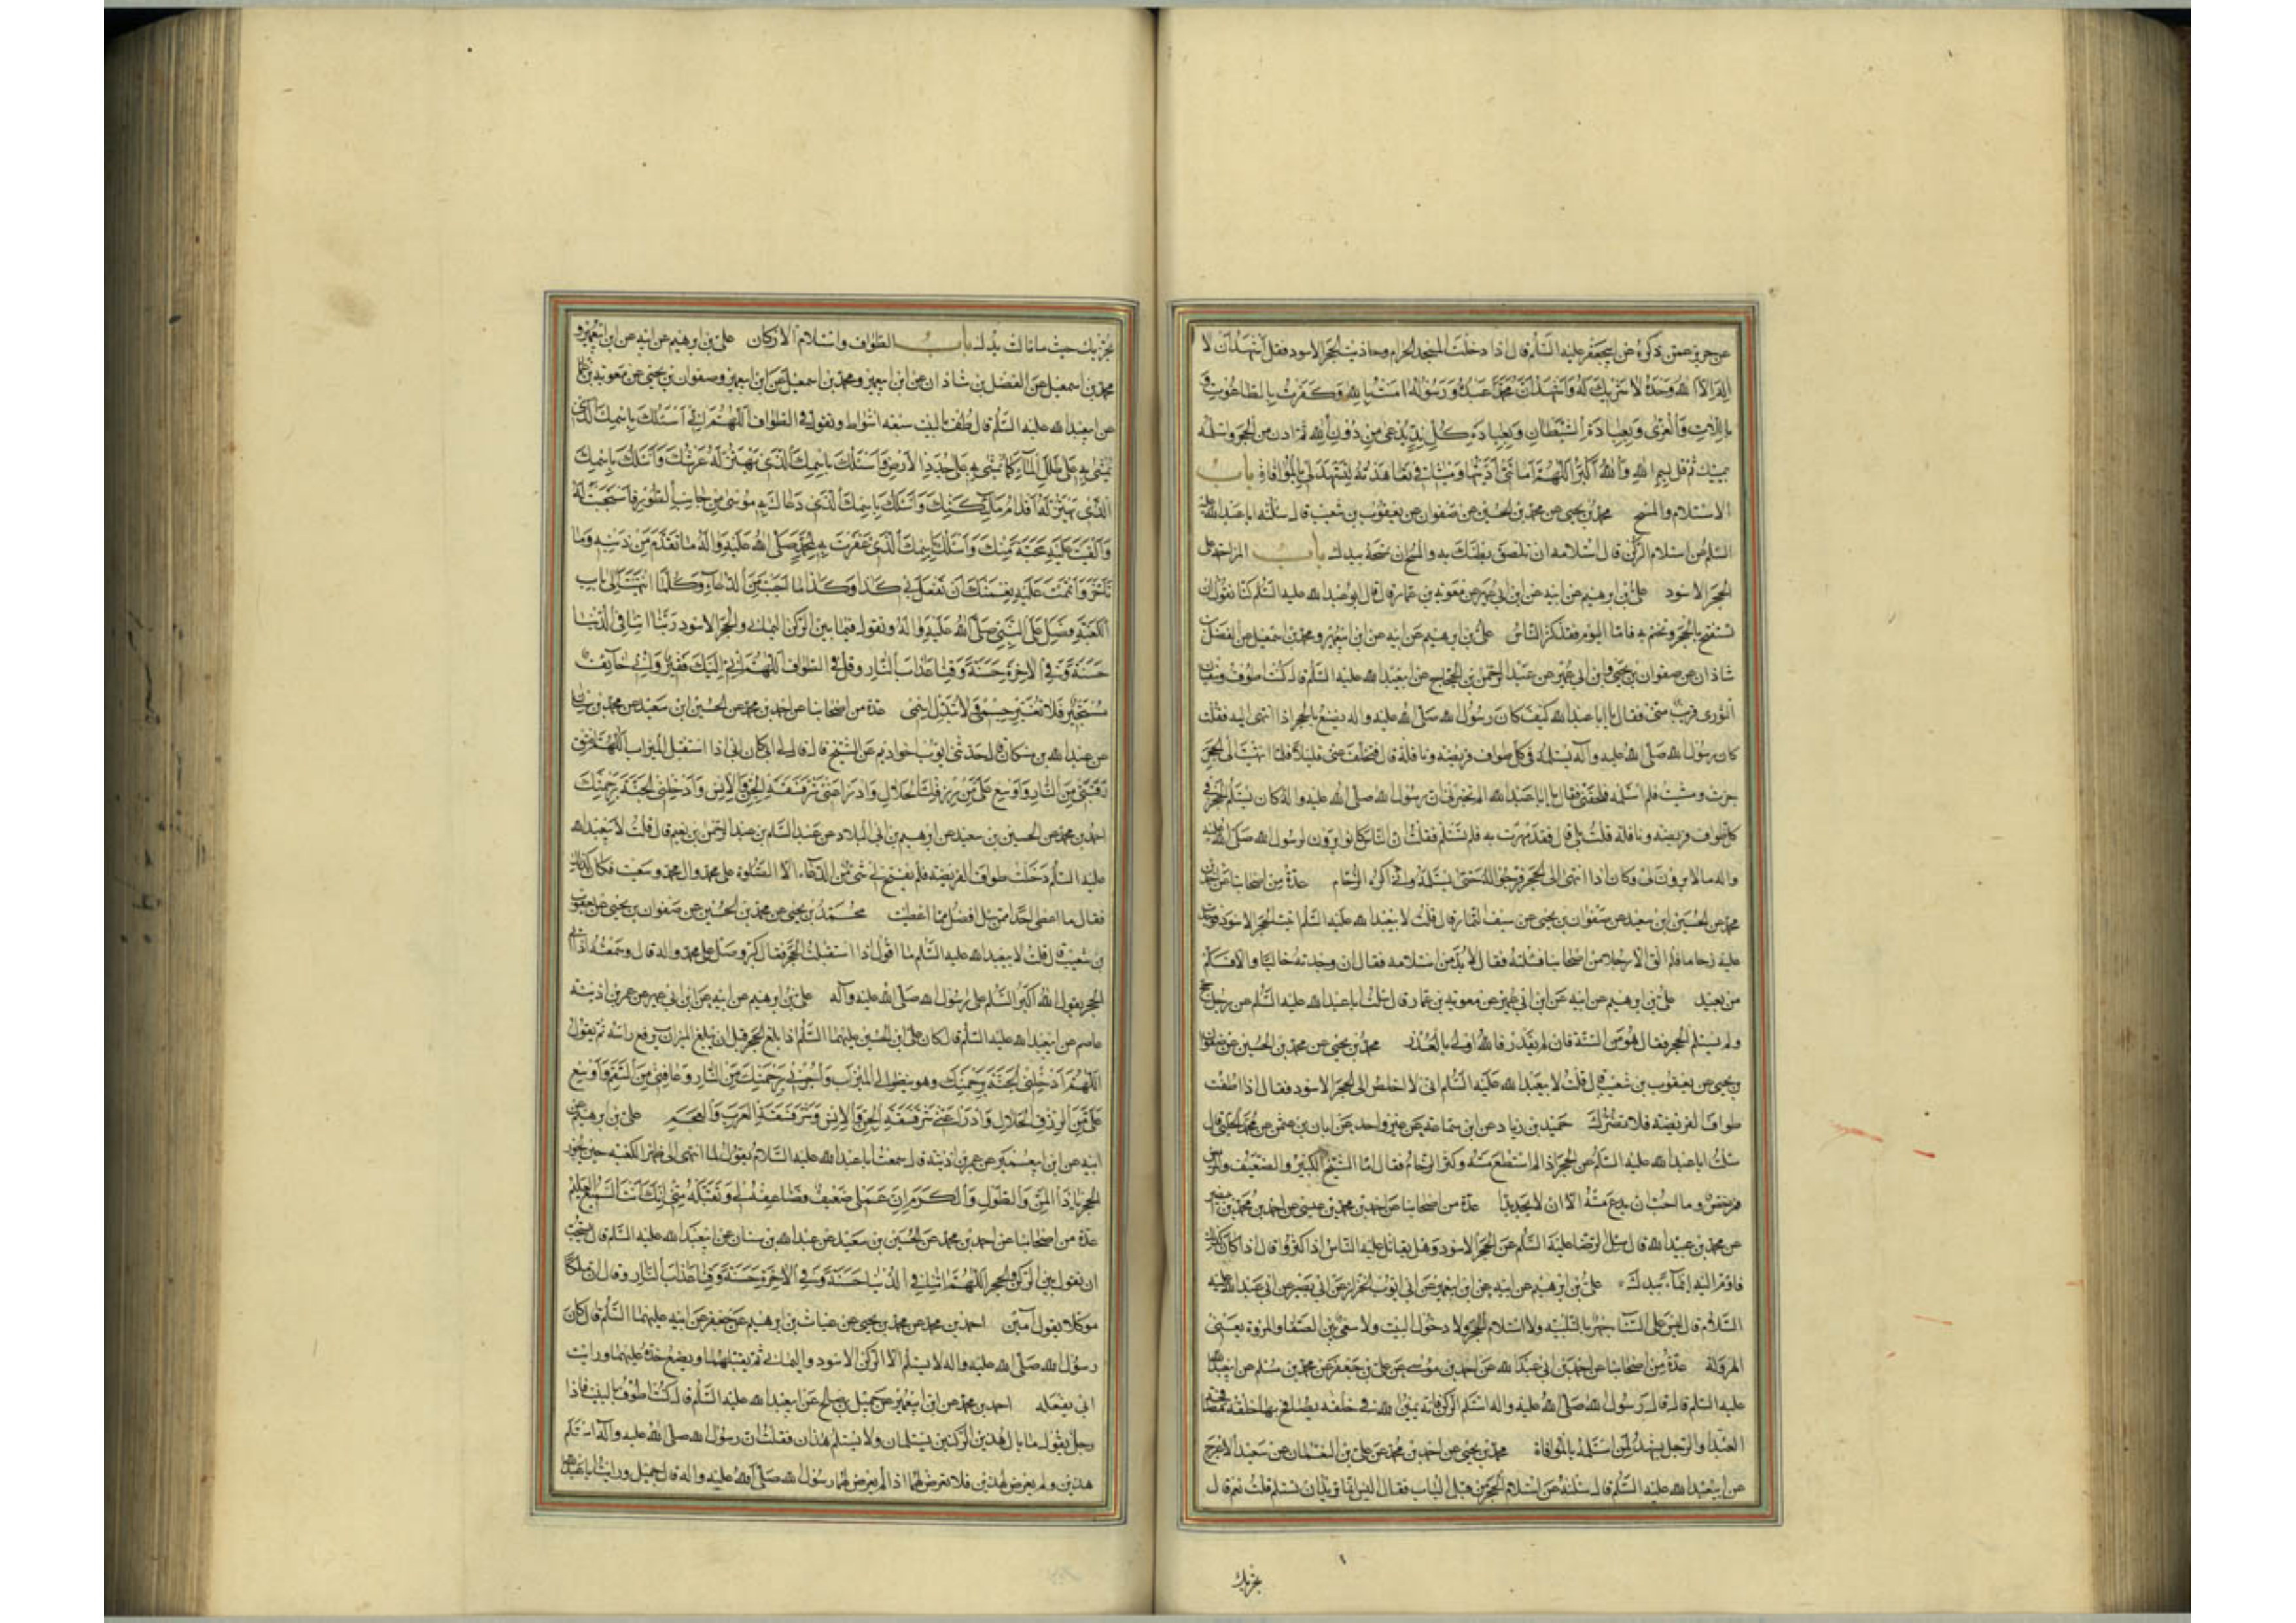 عن حريز عمن ذكره عن ابيجعفر عليه السلم قال اذا دخلت المسجد الحرام وحاذيت الحجر الاسود فقل اشهد ان لا
اله الا الله وحده لا شريك له واشهد ان محمدا عبده ورسوله امنت بالله وكفرت بالطاغوت و
باللات والعزى وبعبادة الشيطان وبعبادة كل ند يدعى من دون الله ثم ادن من الحجر واستلمه
بيمينك ثم قل بسم الله والله اكبر اللهم امانتي اديتها وميثاقي تعاهدته لتشهد لي بالموافاة باب
الاستلام والمسح محمد بن يحيى عن محمد بن الحسين عن صفوان عن يعقوب بن شعيب قال سئلته اباعبدالله عليه
السلم عن استلام الركن قال استلامه ان تلصق بطنك به والمسح ان تمسحه بيدك باب المزاحمة على
الحجر الاسود علي بن ابرهيم عن ابيه عن ابن ابي عمير عن معوية بن عمار قال قال ابو عبد الله عليه السلم كنا نقول ان
نستفتح بالحجر ونختم به فاما اليوم فقد كثر الناس علي بن ابرهيم عن ابيه عن ابن ابيعمير ومحمد بن اسمعيل عن الفضل بن
شاذان عن صفوان بن يحيى وابن ابي عمير عن عبد الرحمن بن الحجاج عن ابيعبد الله عليه السلم قال كنت اطوف وسفيان
الثوري قريب مني فقال يا ابا عبد الله كيف كان رسول الله صلى الله عليه واله يصنع بالحجر اذا انتهى اليه فقلت
كان رسول الله صلى الله عليه وآله يستلمه في كل طواف فريضة ونافلة قال فتخلف عني قليلا فلما انتهيت الى الحجر
جزت ومشيت فلم استلمه فلحقني فقال يا ابا عبد الله الم تخبرني ان رسول الله صلى الله عليه واله كان يستلم الحجر في
كل طواف فريضة ونافلة قلت بلى قال فقد مررت به فلم تستلم فقلت ان الناس كانوا يرون لرسول الله صلى الله عليه
واله ما لا يرون لي وكان اذا انتهى الى الحجر فرجوا له حتى يستلمه واني اكره الزحام عدة من اصحابنا عن احمد بن
محمد عن الحسين بن سعيد عن صفوان بن يحيى عن سيف التمار قال قلت لابيعبد الله عليه السلم اتيت الحجر الاسود فوجدت
عليه زحاما فلم الق الا رجلا من اصحابنا فسئلته فقال لا بد من استلامه فقال ان وجدته خاليا والا فسلم
من بعيد علي بن ابرهيم عن ابيه عن ابن ابي عمير عن معوية بن عمار قال سئلت ابا عبد الله عليه السلم عن رجل حج
ولم يستلم الحجر فقال هو من السنة فان لم يقدر فالله اولى بالعذر محمد بن يحيى عن محمد بن الحسين عن صفوان
بن يحيى عن يعقوب بن شعيب قال قلت لابيعبد الله عليه السلم اني لا اخلص الى الحجر الاسود فقال اذا طفت
طواف الفريضة فلا يضرك حميد بن زياد عن ابن سماعة عن غير واحد عن ابان بن عثمن عن محمد الحلبي قال
سئلت ابا عبد الله عليه السلم عن الحجر اذا لم استطع مسه وكثر الزحام فقال اما الشيخ الكبير والضعيف والمريض
فمرخص وما احب ان يدع مسه الا ان لا يجد بدا عدة من اصحابنا عن احمد بن محمد بن عيسى عن احمد بن محمد بن ابي نصر
عن محمد بن عبيد الله قال سئل الرضا عليه السلم عن الحجر الاسود وهل يقاتل عليه الناس اذا كثروا قال اذا كان كذلك
فاوم اليه ايماء بيدك علي بن ابرهيم عن ابيه عن ابن ابيعمير عن ابي ايوب الخزاز عن ابي بصير عن ابي عبد الله عليه
السلام قال ليس على النساء جهر بالتلبية ولا استلام الحجر ولا دخول البيت ولا سعي بين الصفا والمروة يعني
الهرولة عدة من اصحابنا عن احمد بن ابي عبد الله عن احمد بن موسى عن علي بن جعفر عن محمد بن مسلم عن ابيعبد الله
عليه السلم قال قال رسول الله صلى الله عليه واله استلموا الركن فانه يمين الله في خلقه يصافح بها خلقه مصافحة
العبد او الرجل يشهد لمن استلمه بالموافاة محمد بن يحيى عن احمد بن محمد عن علي بن النعمان عن سعيد الاعرج
عن ابيعبد الله عليه السلم قال سئلته عن استلام الحجر من قبل الباب فقال اليس انما تريد ان تستلم قلت نعم قال
يجزيك
يجزيك حيث ما نالت يدك باب الطواف واستلام الاركان علي بن ابرهيم عن ابيه عن ابن ابيعمير و
محمد بن اسمعيل عن الفضل بن شاذان عن ابن ابيعمير وصفوان بن يحيى عن معوية بن عمار
عن ابيعبد الله عليه السلم قال طف بالبيت سبعة اشواط وتقول في الطواف اللهم اني اسئلك باسمك الذي
يمشى به على طلل الماء كما يمشى به على جدد الارض واسئلك باسمك الذي يهتز له عرشك واسئلك باسمك
الذي تهتز له اقدام ملئكتك واسئلك باسمك الذي دعاك به موسى من جانب الطور فاستجبت له
والقيت عليه محبة منك واسئلك باسمك الذي غفرت به لمحمد صلى الله عليه واله ما تقدم من ذنبه وما
تاخر واتممت عليه نعمتك ان تفعل بي كذا وكذا ما احببت من الدعاء وكلما انتهيت الى باب
الكعبة فصل على النبي صلى الله عليه واله وتقول فيما بين الركن اليماني والحجر الاسود ربنا اتنا في الدنيا
حسنة وفي الاخرة حسنة وقنا عذاب النار وقل في الطواف اللهم اني اليك فقير واني خائف
مستجير فلا تغير جسمي ولا تبدل اسمي عدة من اصحابنا عن احمد بن محمد عن الحسين ابن سعيد عن محمد بن سنان
عن عبد الله بن مسكان قال حدثني ايوب اخو اديم عن الشيخ قال قال لي ابي كان ابي اذا استقبل الميزاب اللهم اعتق
رقبتي من النار واوسع علي من رزقك الحلال وادرا عني شر فسقة الجن والانس وادخلني الجنة برحمتك
احمد بن محمد عن الحسين بن سعيد عن ابرهيم بن ابي البلاد عن عبد السلم بن عبد الرحمن بن نعيم قال قلت لابيعبد الله
عليه السلم دخلت طواف الفريضة فلم يفتح لي شيء من الدعاء الا الصلوة على محمد وال محمد وسعيت فكان كذلك
فقال ما اعطي احد ممن سئل افضل مما اعطيت محمد بن يحيى عن محمد بن الحسين عن صفوان بن يحيى عن يعقوب
بن شعيب قال قلت لابيعبد الله عليه السلم ما اقول اذا استقبلت الحجر فقال كبر وصل على محمد واله قال وسمعته اذا اتى
الحجر يقول الله اكبر السلم على رسول الله صلى الله عليه وآله علي بن ابرهيم عن ابيه عن ابن ابي عمير عن عمر بن اذينة
عاصم عن ابيعبد الله عليه السلم قال كان علي بن الحسين عليهما السلم اذا بلغ الحجر قبل ان يبلغ الميزاب يرفع راسه ثم يقول
اللهم ادخلني الجنة برحمتك وهو ينظر الى الميزاب واجرني برحمتك من النار وعافني من السقم واوسع
علي من الرزق الحلال وادرا عني شر فسقة الجن والانس وشر فسقة العرب والعجم علي بن ابرهيم عن
ابيه عن ابن ابيعمير عن عمر بن اذينة قال سمعت ابا عبد الله عليه السلام يقول لما انتهى الى ظهر الكعبة حين يجوز
الحجر يا ذا المن والطول والكرم ان عملي ضعيف فضاعفه لي وتقبله مني انك انت السميع العليم
عدة من اصحابنا عن احمد بن محمد عن الحسين بن سعيد عن عبد الله بن سنان عن ابيعبد الله عليه السلم قال يستحب
ان تقول بين الركن والحجر اللهم اتنا في الدنيا حسنة وفي الاخرة حسنة وقنا عذاب النار وقال ان ملكا
موكلا يقول آمين احمد بن محمد عن محمد بن يحيى عن غياث بن ابرهيم عن جعفر عن ابيه عليهما السلم قال كان
رسول الله صلى الله عليه واله لا يستلم الا الركن الاسود واليماني ثم يقبلهما ويضع خده عليهما ورايت
ابي يفعله احمد بن محمد عن ابن ابيعمير عن جميل بن صالح عن ابيعبد الله عليه السلم قال كنت اطوف بالبيت فاذا
رجل يقول ما بال هذين الركنين يستلمان ولا يستلم هذان فقلت ان رسول الله صلى الله عليه وآله استلم
هذين ولم يعرض لهذين فلا تعرض لهما اذا لم يعرض لهما رسول الله صلى الله عليه واله قال جميل ورايت ابا عبد الله